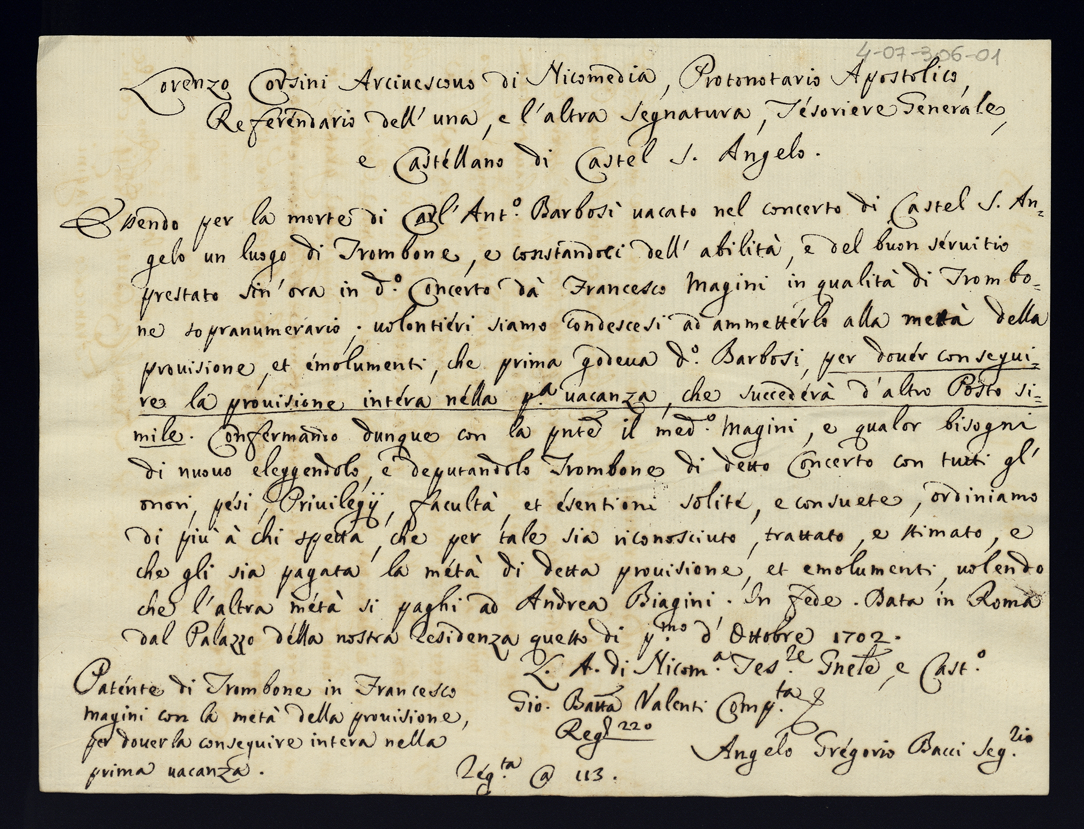 4-07-306-01
Lorenzo Corsini Arciuescouo di Nicomedia, Protonotario Apostolico,
Referendario dell' una, e l'altra segnatura, Tesoriere Generale,
e Castellano di Castel S. Angelo.
Essendo per la morte di Carl' Ant.º Barbosi uacato nel concerto di Castel S. An-
gelo un luogo di Trombone, e constandoci dell' abilità, e del buon seruitio
prestato sin' ora in d.º Concerto dà Francesco Magini in qualità di Trombo-
ne sopranumerario. uolontieri siamo condescesi ad ammetterlo alla metà della
prouisione, et emolumenti, che prima godeua d.º Barbosi, per douer consegui-
re la prouisione intera nella p.ª uacanza, che succederà d'altro Posto si-
mile. Confermando dunque con la pnte il med.º Magini, e qualor bisogni
di nuouo eleggendolo, e deputandolo Trombone di detto Concerto con tutti gl'
onori, pesi, Privilegij, facultà, et esentioni solite, e consuete, ordiniamo
di più à chi spetta, che per tale sia riconosciuto, trattato, e stimato, e
che gli sia pagata la metà di detta prouisione, et emolumenti, uolendo
che l'altra metà si paghi ad Andrea Biagini. In fede. Data in Roma
dal Palazzo della nostra Residenza questo dì p.mo d' Ottobre 1702.
L. A. di Nicom.ª Tes.re Gnele, e Cast.º
Gio. Batta Valenti Comp.ta
Reg.º 220
Angelo Gregorio Bacci Seg.rio
Patente di Trombone in Francesco
Magini con la metà della prouisione,
per douerla conseguire intera nella
prima uacanza.
Reg.ta @ 113.